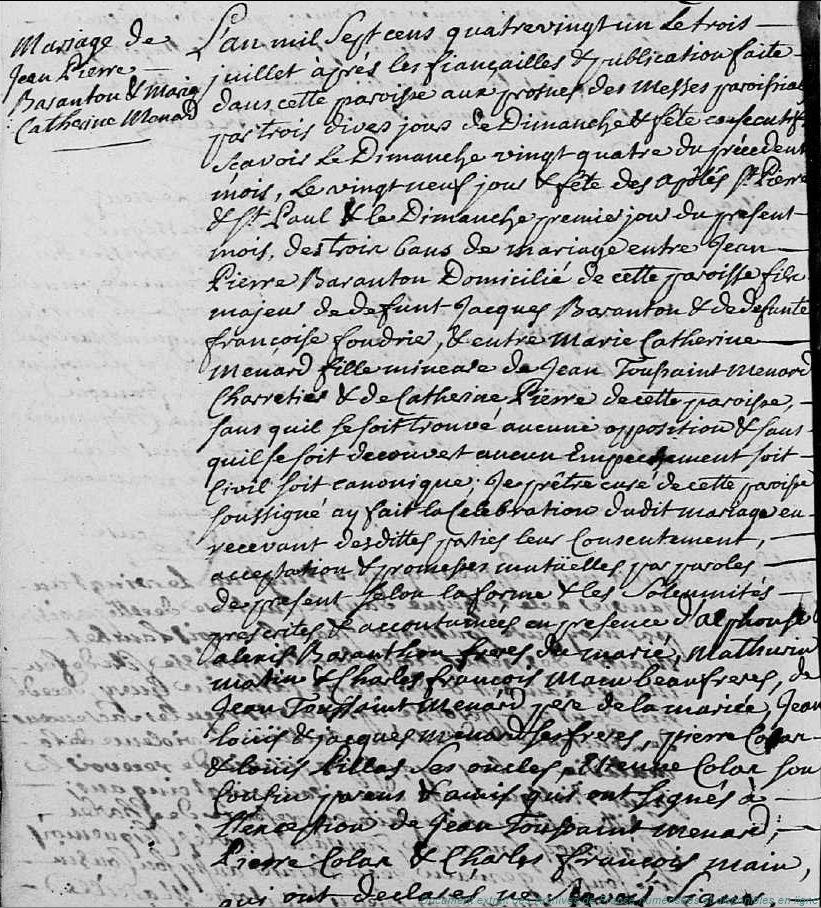 Mariage de
Jean Pierre
Baranton & Marie
Catherine Menard
L'an mil Sept cens quatrevingt un Le trois
juillet après les fiançailles & publication faite
dans cette paroisse aux prosnes des Messes paroissiales
par trois divers jours de Dimanche & fête consecutifs
Scavoir Le Dimanche vingt quatre du précedent
mois, Le vingt neuf jour & fête des apôtres St Pierre
& St Paul & le Dimanche premier jour du present
mois, des trois bans de mariage entre Jean
Pierre Baranton Domicilié de cette paroisse fils
majeur de defunt Jacques Baranton & de defunte
françoise foudrié, & entre Marie Catherine
Menard fille mineure de Jean Toussaint Menard
Charretier & de Catherine Pierre de cette paroisse,
sans quil se soit trouvé aucune opposition & sans
quil se soit decouvert aucun Empechement soit
Civil soit canonique. Je prêtre curé de cette paroisse
soussigné ay fait la Celebration dudit mariage en
recevant desdittes parties leur Consentement,
acceptation & promesses mutüelles par paroles
de present selon la forme & les Solemnités
prescrites & accoutumées en presence d'alphonse
alexis Baranthon freres du marié, Mathurin
& Charles françois Main beaufreres, de
Jean Toussaint Menard pere de la mariée, Jean
loüis & jacques Menard ses freres, pierre Colar
& loüis Pillas ses oncles, Etienne Colar son
Cousin parens & amis qui ont signés à
l'exception de Jean Toussaint Menard,
Pierre Colar & Charles françois main,
qui ont declarés ne Scavoir Signer.
Document extrait des archives de numérisés et disponibles en ligne